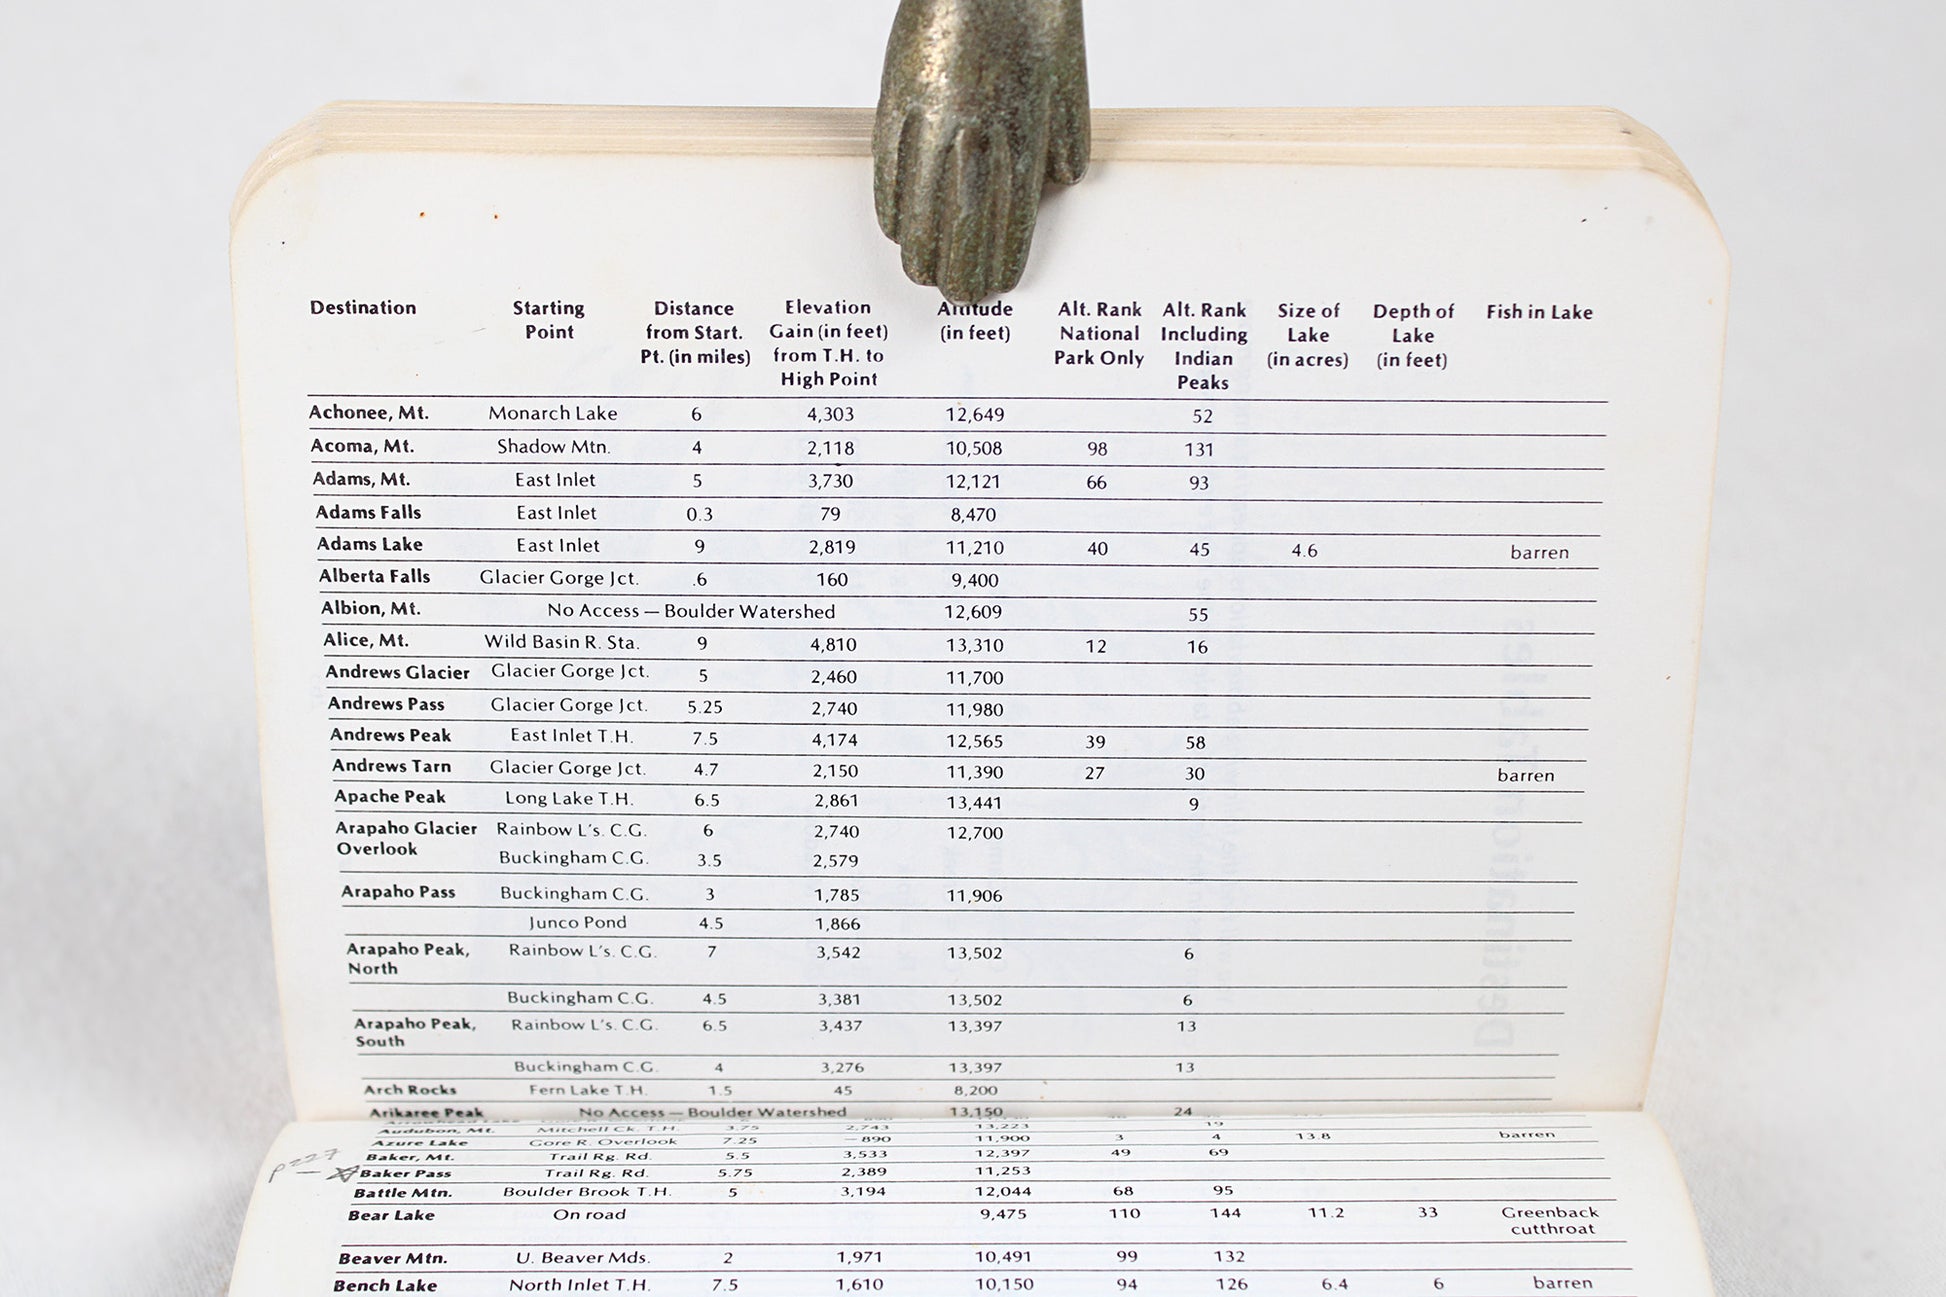 Destination Starting Point Distance from Start. Pt. (in miles) Elevation Gain (in feet) from T.H. to High Point Altitude (in feet) Alt. Rank National Park Only Alt. Rank Including Indian Peaks Size of Lake (in acres) Depth of Lake (in feet) Fish in Lake
Achonee, Mt. Monarch Lake 6 4,303 12,649 52
Acoma, Mt. Shadow Mtn. 4 2,118 10,508 98 131
Adams, Mt. East Inlet 5 3,730 12,121 66 93
Adams Falls East Inlet 0.3 79 8,470
Adams Lake East Inlet 9 2,819 11,210 40 45 4.6 barren
Alberta Falls Glacier Gorge Jct. .6 160 9,400
Albion, Mt. No Access — Boulder Watershed 12,609 55
Alice, Mt. Wild Basin R. Sta. 9 4,810 13,310 12 16
Andrews Glacier Glacier Gorge Jct. 5 2,460 11,700
Andrews Pass Glacier Gorge Jct. 5.25 2,740 11,980
Andrews Peak East Inlet T.H. 7.5 4,174 12,565 39 58
Andrews Tarn Glacier Gorge Jct. 4.7 2,150 11,390 27 30 barren
Apache Peak Long Lake T.H. 6.5 2,861 13,441 9
Arapaho Glacier Rainbow L's. C.G. 6 2,740 12,700
Overlook Buckingham C.G. 3.5 2,579
Arapaho Pass Buckingham C.G. 3 1,785 11,906
Junco Pond 4.5 1,866
Arapaho Peak, Rainbow L's. C.G. 7 3,542 13,502 6
North
Buckingham C.G. 4.5 3,381 13,502 6
Arapaho Peak, Rainbow L's. C.G. 6.5 3,437 13,397 13
South
Buckingham C.G. 4 3,276 13,397 13
Arch Rocks Fern Lake T.H. 1.5 45 8,200
Arikaree Peak No Access — Boulder Watershed 13,150 24
Audubon, Mt. Mitchell Ck. T.H. 3.75 2,743 13,223 19
Azure Lake Gore R. Overlook 7.25 −890 11,900 3 4 13.8 barren
Baker, Mt. Trail Rg. Rd. 5.5 3,533 12,397 49 69
p227 — Baker Pass Trail Rg. Rd. 5.75 2,389 11,253
Battle Mtn. Boulder Brook T.H. 5 3,194 12,044 68 95
Bear Lake On road 9,475 110 144 11.2 33 Greenback
cutthroat
Beaver Mtn. U. Beaver Mds. 2 1,971 10,491 99 132
Bench Lake North Inlet T.H. 7.5 1,610 10,150 94 126 6.4 6 barren